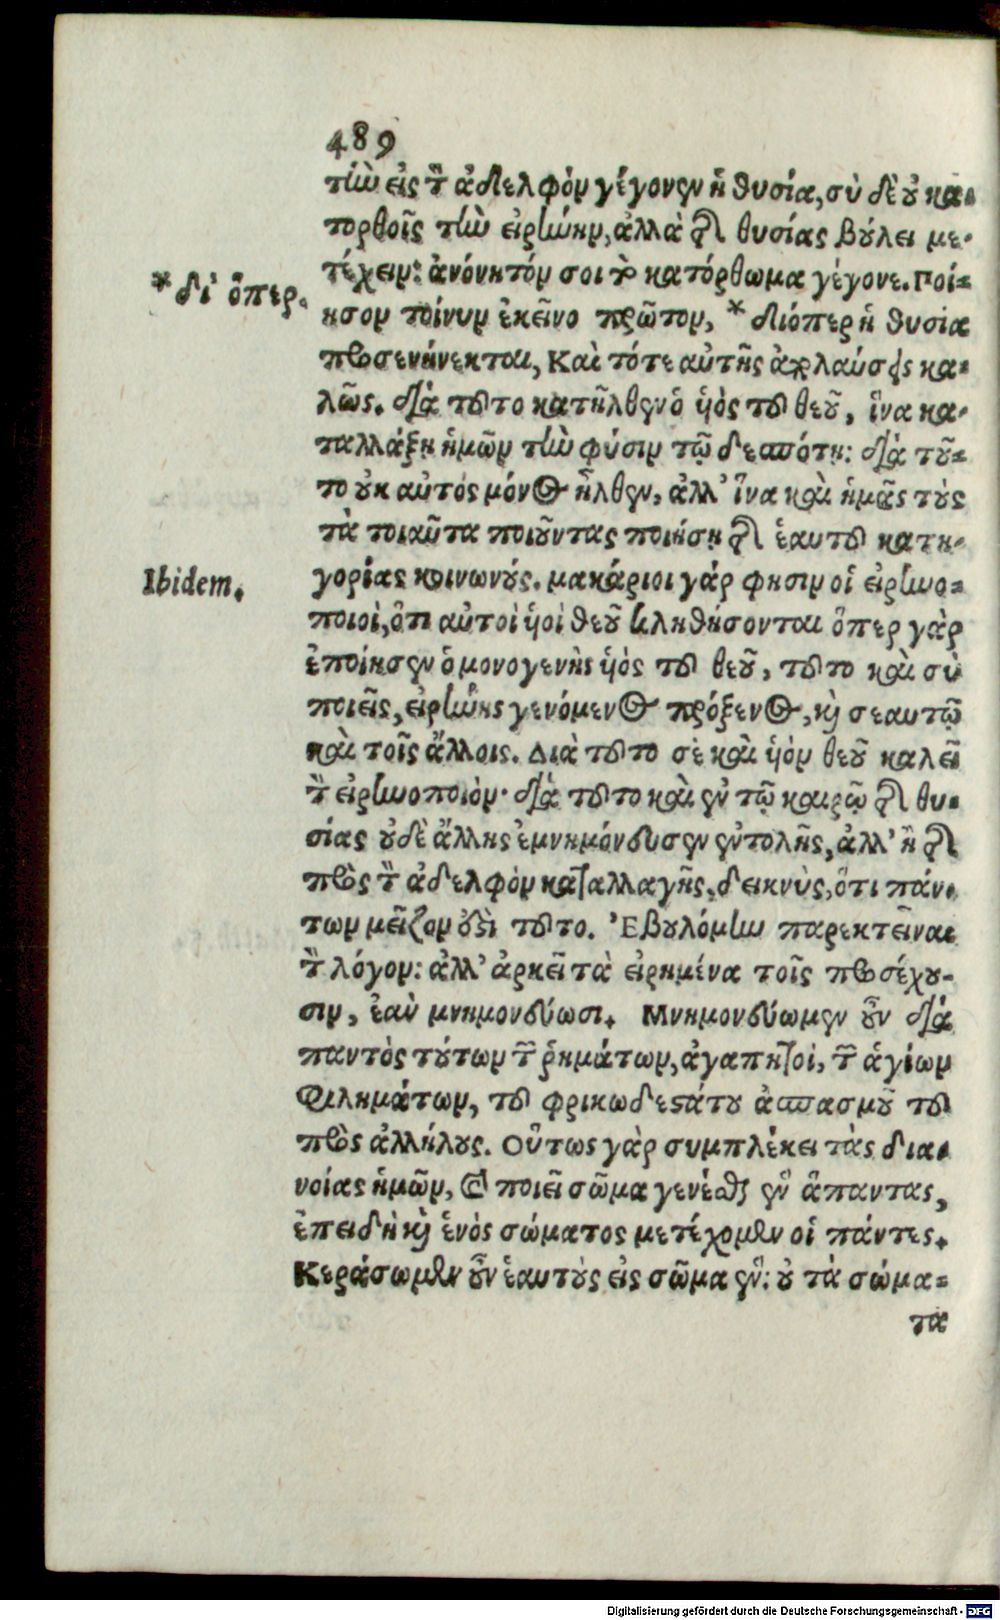 489
τὴν εἰς τὸν ἀδελφὸν γέγονεν ἡ θυσία, σὺ δὲ οὐ κα-
τορθοῖς τὴν εἰρήνην, ἀλλὰ τῆς θυσίας βούλει με-
τέχειν: ἀνόνητόν σοι τὸ κατόρθωμα γέγονε. Ποί-
* δι' ὅπερ.
ησον τοίνυν ἐκεῖνο πρῶτον, * διόπερ ἡ θυσία
προσενήνεκται, Καὶ τότε αὐτῆς ἀπολαύσεις κα-
λῶς. διὰ τοῦτο κατῆλθεν ὁ υἱὸς τοῦ θεοῦ, ἵνα κα-
ταλλάξῃ ἡμῶν τὴν φύσιν τῷ δεσπότῃ: διὰ τοῦ-
το οὐκ αὐτὸς μόνος ἦλθεν, ἀλλ' ἵνα καὶ ἡμᾶς τοὺς
τὰ τοιαῦτα ποιοῦντας ποιήσῃ τῆς ἑαυτοῦ κατη-
Ibidem.
γορίας κοινωνούς. μακάριοι γάρ φησιν οἱ εἰρηνο-
ποιοὶ, ὅτι αὐτοὶ υἱοὶ θεοῦ κληθήσονται ὅπερ γὰρ
ἐποίησεν ὁ μονογενὴς υἱὸς τοῦ θεοῦ, τοῦτο καὶ σὺ
ποιεῖς, εἰρήνης γενόμενος πρόξενος, καὶ σεαυτῷ
καὶ τοῖς ἄλλοις. Διὰ τοῦτο σὲ καὶ υἱὸν θεοῦ καλεῖ
τὸν εἰρηνοποιόν· διὰ τοῦτο καὶ ἐν τῷ καιρῷ τῆς θυ-
σίας οὐδὲ ἄλλης ἐμνημόνευσεν ἐντολῆς, ἀλλ' ἢ τῆς
πρὸς τὸν ἀδελφὸν καταλλαγῆς, δεικνὺς, ὅτι πάν-
των μεῖζον ἐστὶ τοῦτο. Ἐβουλόμην παρεκτεῖναι
τὸν λόγον: ἀλλ' ἀρκεῖ τὰ εἰρημένα τοῖς προσέχου-
σιν, ἐὰν μνημονεύωσι. Μνημονεύωμεν οὖν διὰ
παντὸς τούτων τῶν ῥημάτων, ἀγαπητοὶ, τῶν ἁγίων
φιλημάτων, τοῦ φρικωδεστάτου ἀσπασμοῦ τοῦ
πρὸς ἀλλήλους. Οὕτως γὰρ συμπλέκει τὰς δια-
νοίας ἡμῶν, καὶ ποιεῖ σῶμα γενέσθαι ἓν ἅπαντας,
ἐπειδὴ καὶ ἑνὸς σώματος μετέχομεν οἱ πάντες.
Κεράσωμεν οὖν ἑαυτοὺς εἰς σῶμα ἕν: οὐ τὰ σώμα-
τα
Digitalisierung gefördert durch die Deutsche Forschungsgemeinschaft - DFG